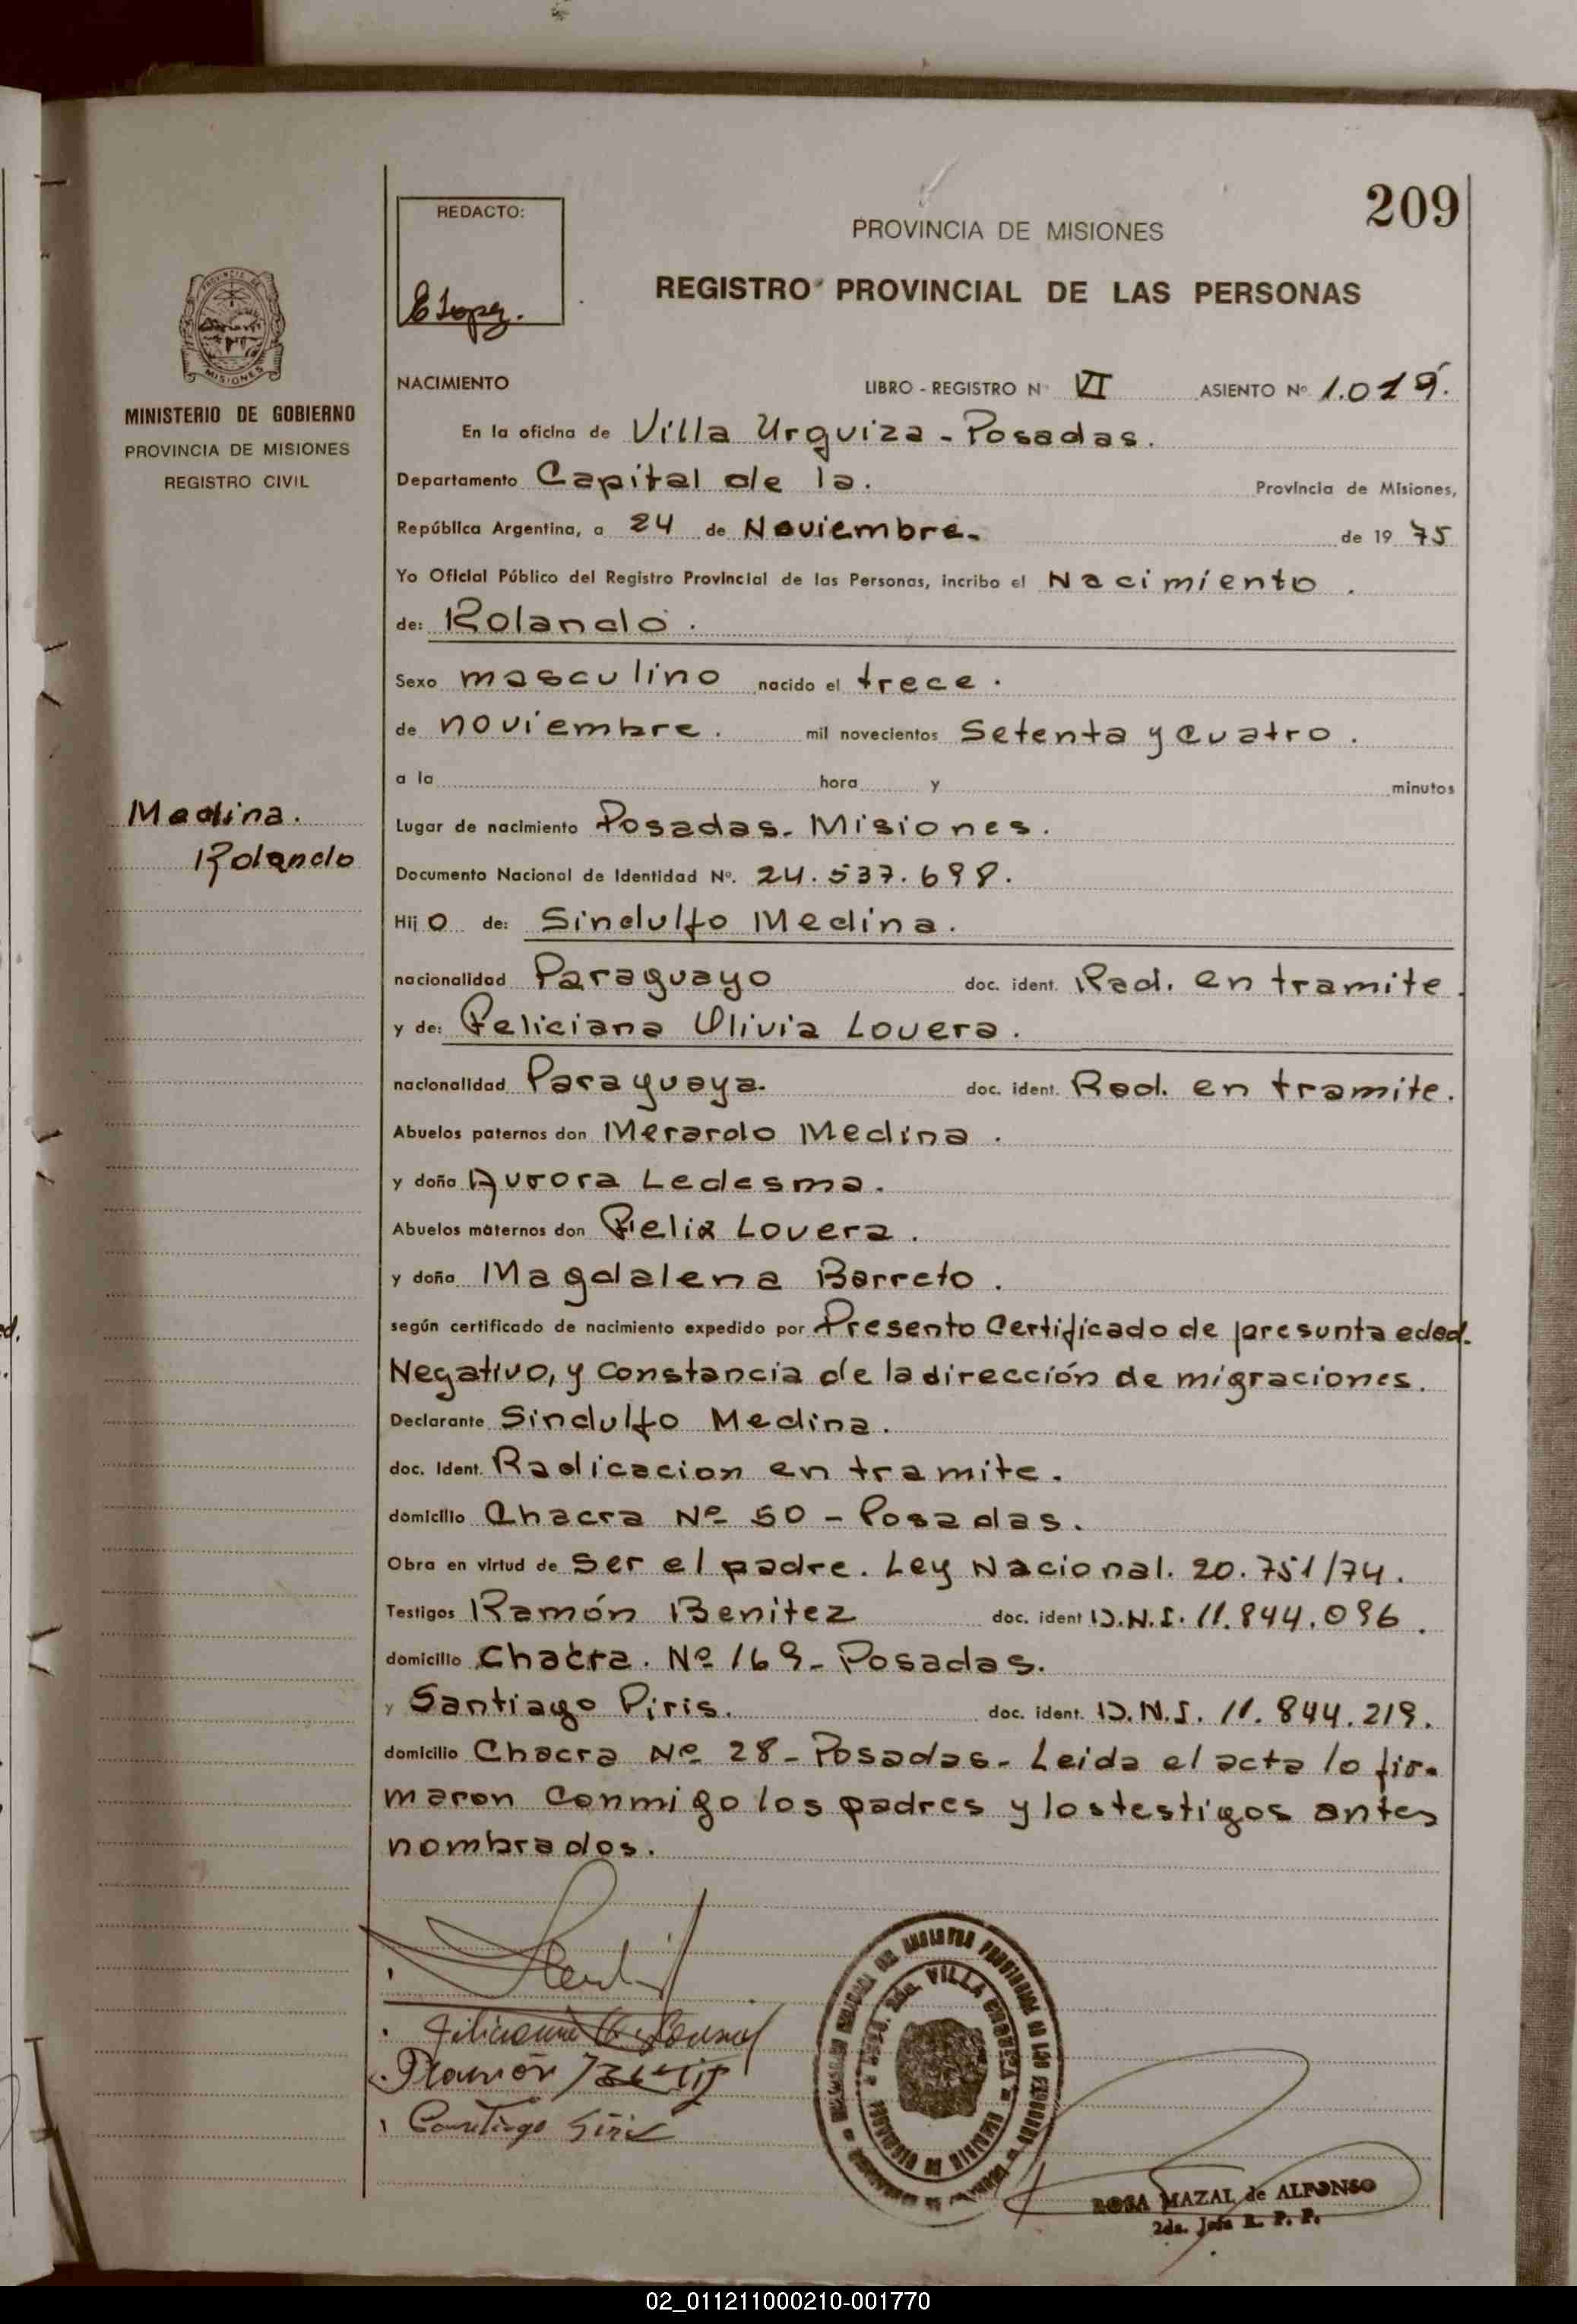 209
REDACTO:
E Lopez.
PROVINCIA DE MISIONES
REGISTRO PROVINCIAL DE LAS PERSONAS
MISIONES
MINISTERIO DE GOBIERNO
PROVINCIA DE MISIONES
REGISTRO CIVIL
NACIMIENTO LIBRO - REGISTRO Nº VI ASIENTO Nº 1.019.
En la oficina de Villa Urquiza - Posadas.
Departamento Capital de la. Provincia de Misiones,
República Argentina, a 24 de Noviembre. de 19 75
Yo Oficial Público del Registro Provincial de las Personas, incribo el Nacimiento.
de: Rolando.
Sexo masculino nacido el trece.
de noviembre. mil novecientos Setenta y cuatro.
a la hora y minutos
Medina.
Rolando
Lugar de nacimiento Posadas - Misiones.
Documento Nacional de Identidad Nº. 24.537.698.
Hij o de: Sindulfo Medina.
nacionalidad Paraguayo doc. ident. Rad. en tramite.
y de: Feliciana Olivia Lovera.
nacionalidad Paraguaya. doc. ident. Rad. en tramite.
Abuelos paternos don Merardo Medina.
y doña Aurora Ledesma.
Abuelos maternos don Felix Lovera.
y doña Magdalena Barreto.
según certificado de nacimiento expedido por Presento Certificado de presunta edad.
Negativo, y constancia de la dirección de migraciones.
Declarante Sindulfo Medina.
doc. Ident. Radicacion en tramite.
domicilio Chacra Nº 50 - Posadas.
Obra en virtud de ser el padre. Ley Nacional. 20.751/74.
Testigos Ramón Benitez doc. ident D.N.I. 11.844.096.
domicilio Chacra. Nº 169 - Posadas.
y Santiago Piris. doc. ident. D.N.I. 11.844.219.
domicilio Chacra Nº 28 - Posadas - Leida el acta lo fir-
maron conmigo los padres y los testigos antes
nombrados.
Ramón
Santiago
VILLA URQUIZA
ROSA MAZAL de ALFONSO
2da. Jefa R. P. P.
02_011211000210-001770